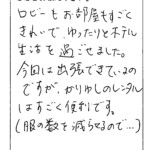 ロビーもお部屋もすごく
きれいで、ゆったりとホテル
生活を過ごせました。
今回は出張できているの
ですが、かりゆしのレンタル
はすごく便利です。
(服の数を減らせるので…)